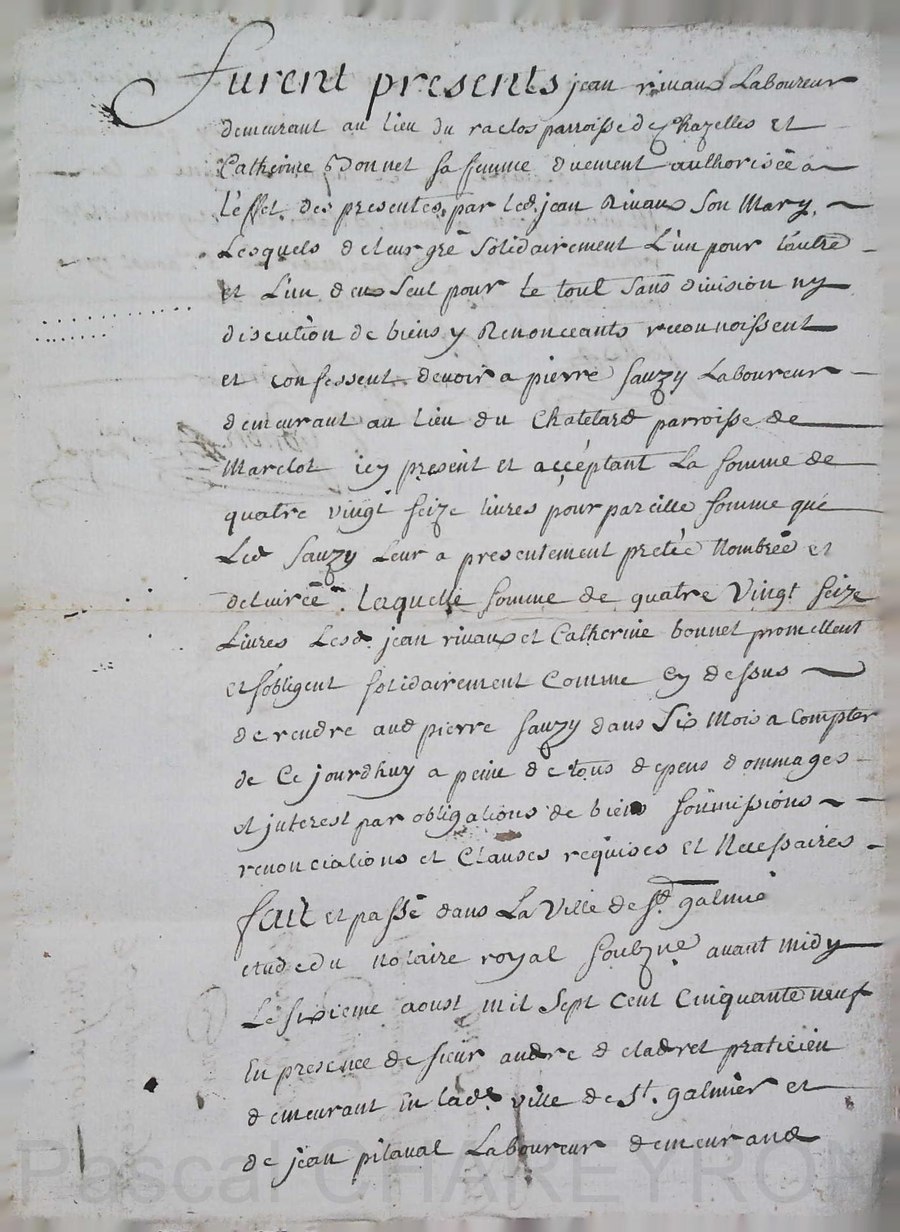 furent presents jean rivaux Laboureur
demeurant au lieu du raclos parroisse de Chazelles et
Catherine Bonnet sa femme duement authorisée a
l'effet des presentes par led. jean Rivaux Son Mary,
Lesquels de leur gré solidairement L'un pour l'autre
et L'un deux seul pour le tout sans division ny
discution de biens y Renonceants reconnoissent
et confessent devoir a pierre sauzy Laboureur
demeurant au lieu du Chatelard parroisse de
Marclot icy present et accéptant La somme de
quatre vingt seize livres pour pareille somme que
Led sauzy Leur a presentement pretée Nombrée et
deluirée. laquelle somme de quatre Vingt seize
Livres Lesd. jean rivaux et Catherine bonnet promettent
et sobligent solidairement Comme cy dessus
de rendre aud pierre sauzy dans Six Mois a Compter
de Ce jourdhuy a peine de tous depens dommages
et jnterest par obligations de biens soumissions
renonciations et Clauses requises et Necessaires
fait et passé dans La Ville de St. galmié
etude du notaire royal soubzne avant midy
Le sixieme aoust mil Sept Cent Cinquante neuf
En presence de sieur andre de praticien
demeurant En lade. ville de St. galmier et
de jean pitaval Laboureur demeurand
Pascal CHAREYRON